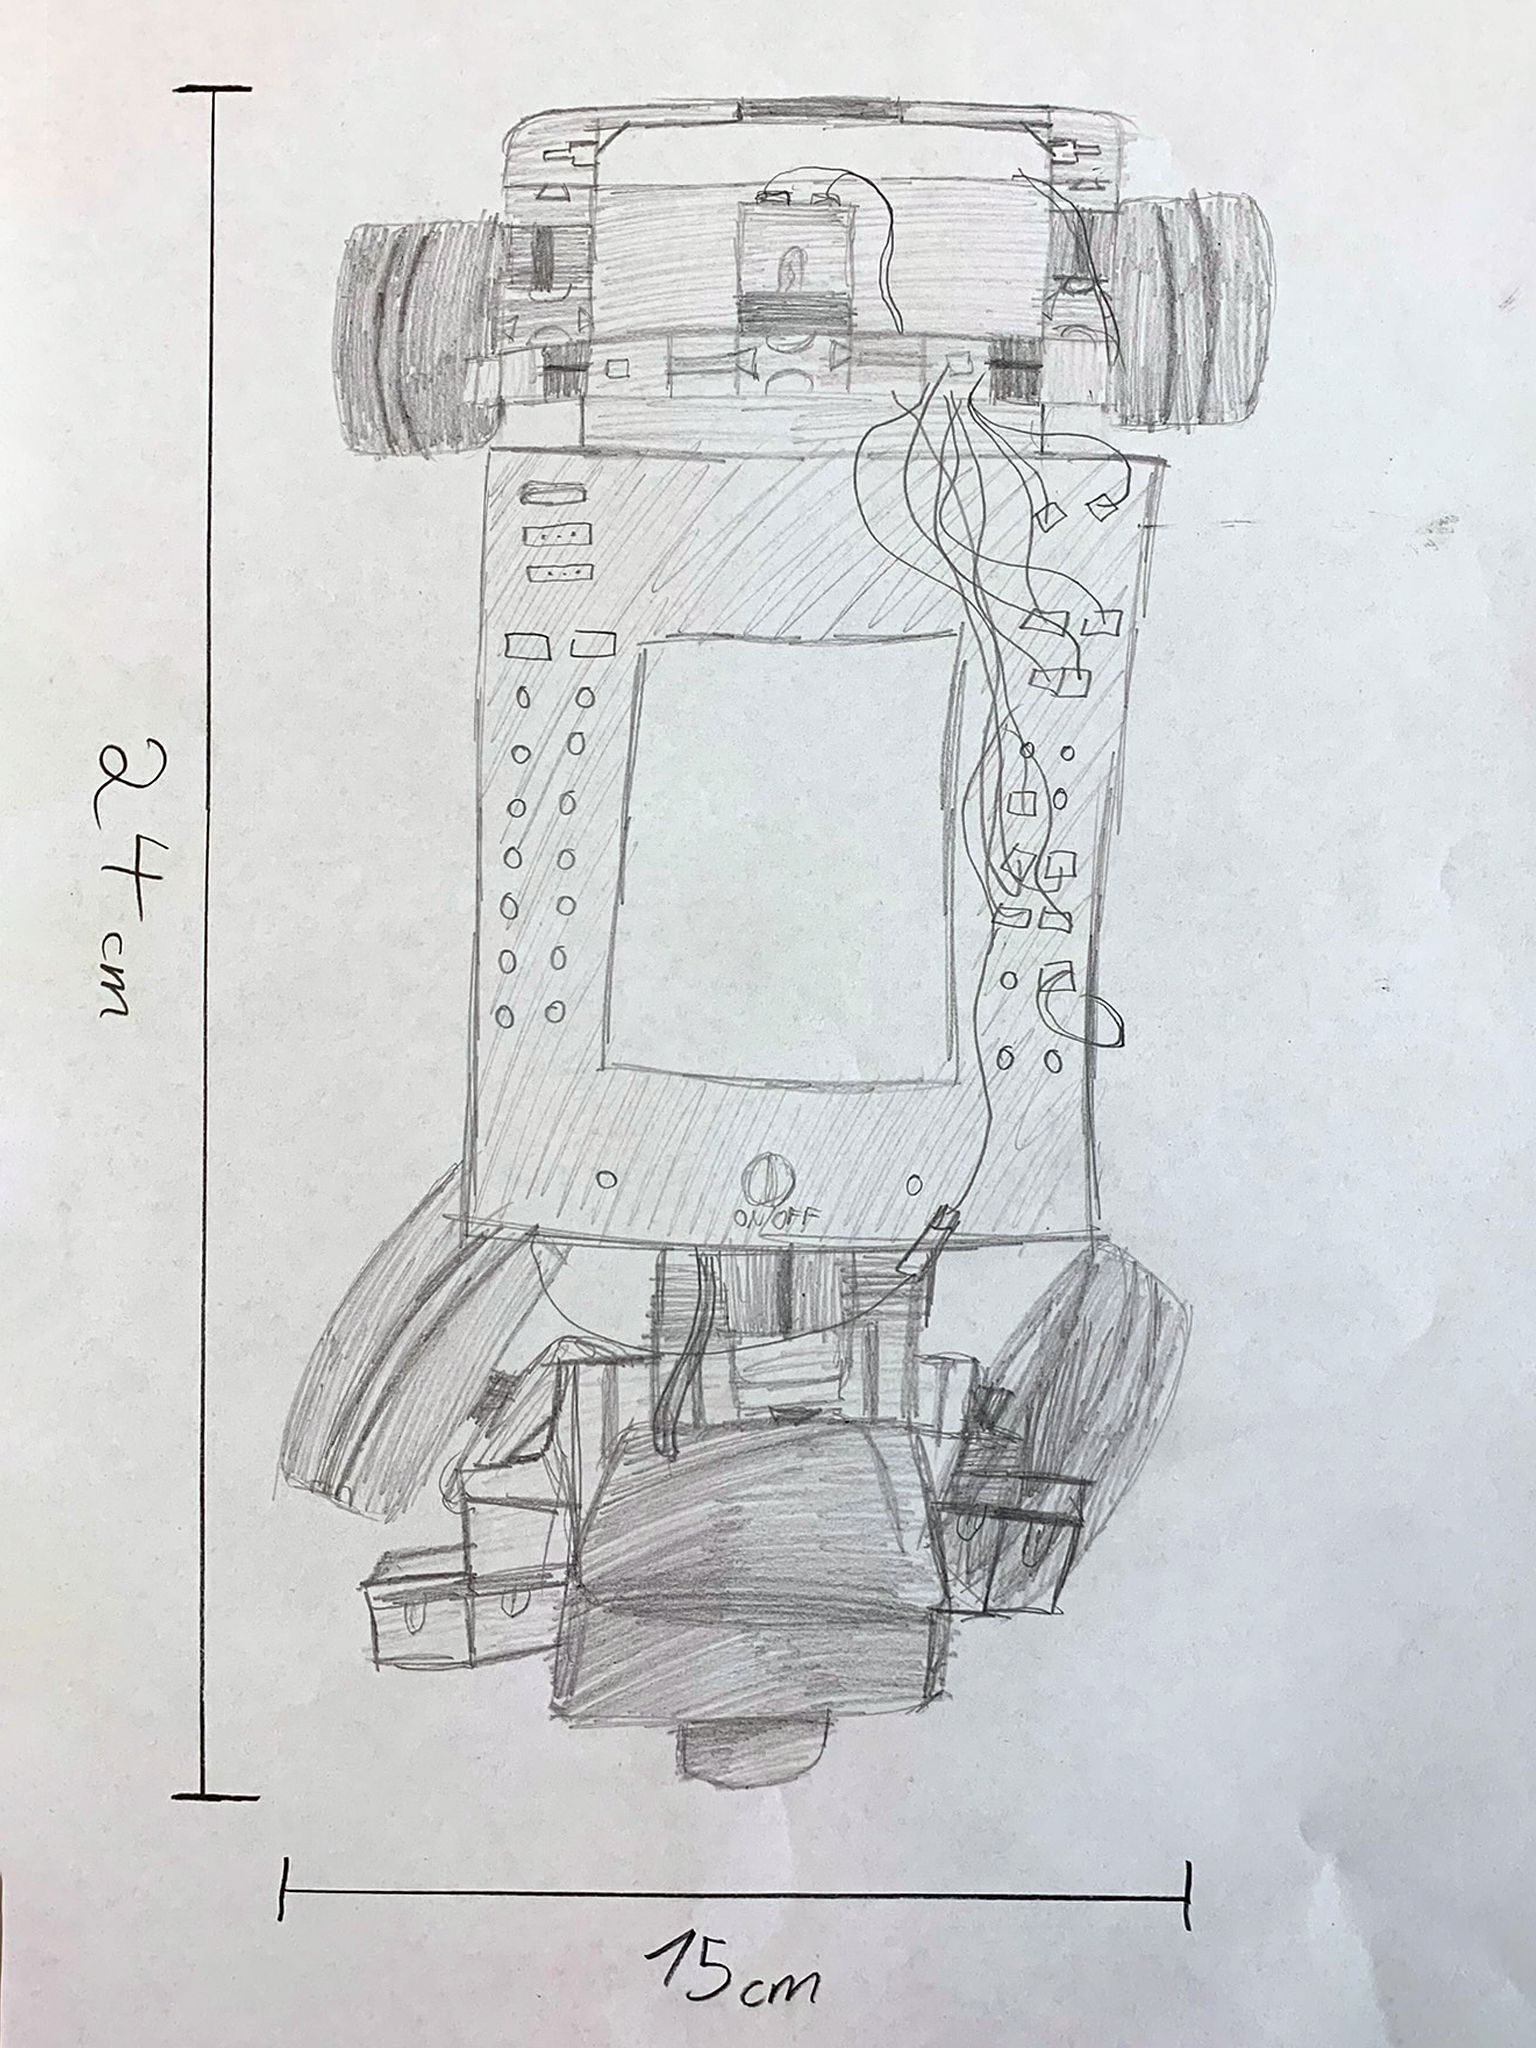 24 cm
ON/OFF
15 cm